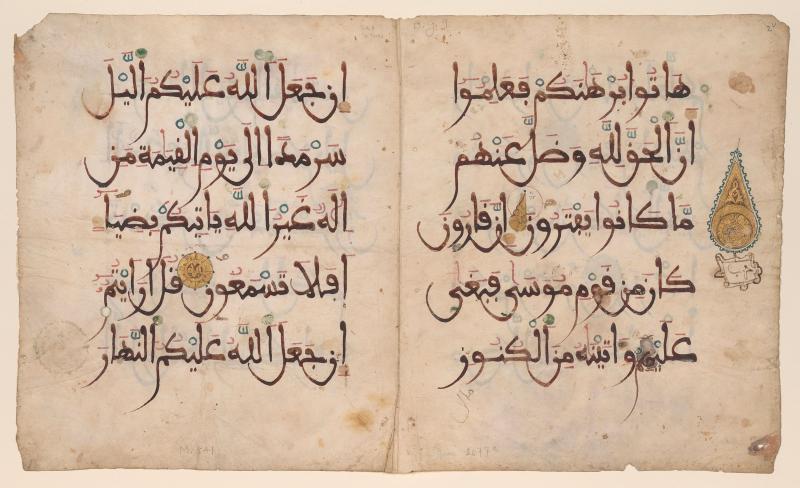 هَاتُوا بُرْهَٰنَكُمْ فَعَلِمُوا
أَنَّ الْحَقَّ لِلَّهِ وَضَلَّ عَنْهُم
مَّا كَانُوا يَفْتَرُونَ إِنَّ قَارُونَ
كَانَ مِن قَوْمِ مُوسَىٰ فَبَغَىٰ
عَلَيْهِمْ وَءَاتَيْنَٰهُ مِنَ الْكُنُوزِ
إِن جَعَلَ اللَّهُ عَلَيْكُمُ الَّيْلَ
سَرْمَدًا إِلَىٰ يَوْمِ الْقِيَٰمَةِ مَنْ
إِلَٰهٌ غَيْرُ اللَّهِ يَأْتِيكُم بِضِيَآءٍ
أَفَلَا تَسْمَعُونَ قُلْ أَرَأَيْتُمْ
إِن جَعَلَ اللَّهُ عَلَيْكُمُ النَّهَارَ